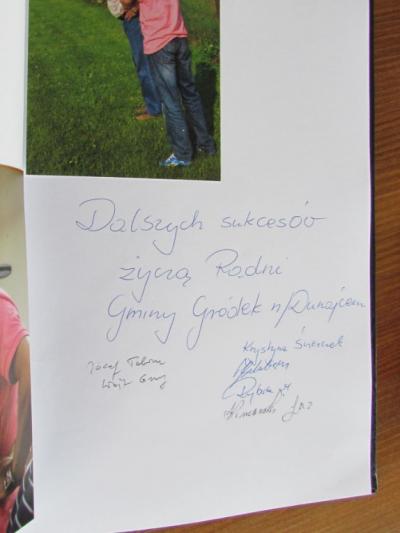 Dalszych sukcesów
życzą Radni
Gminy Gródek n/Dunajcem
Józef Tobiasz
Wójt Gminy
Krystyna